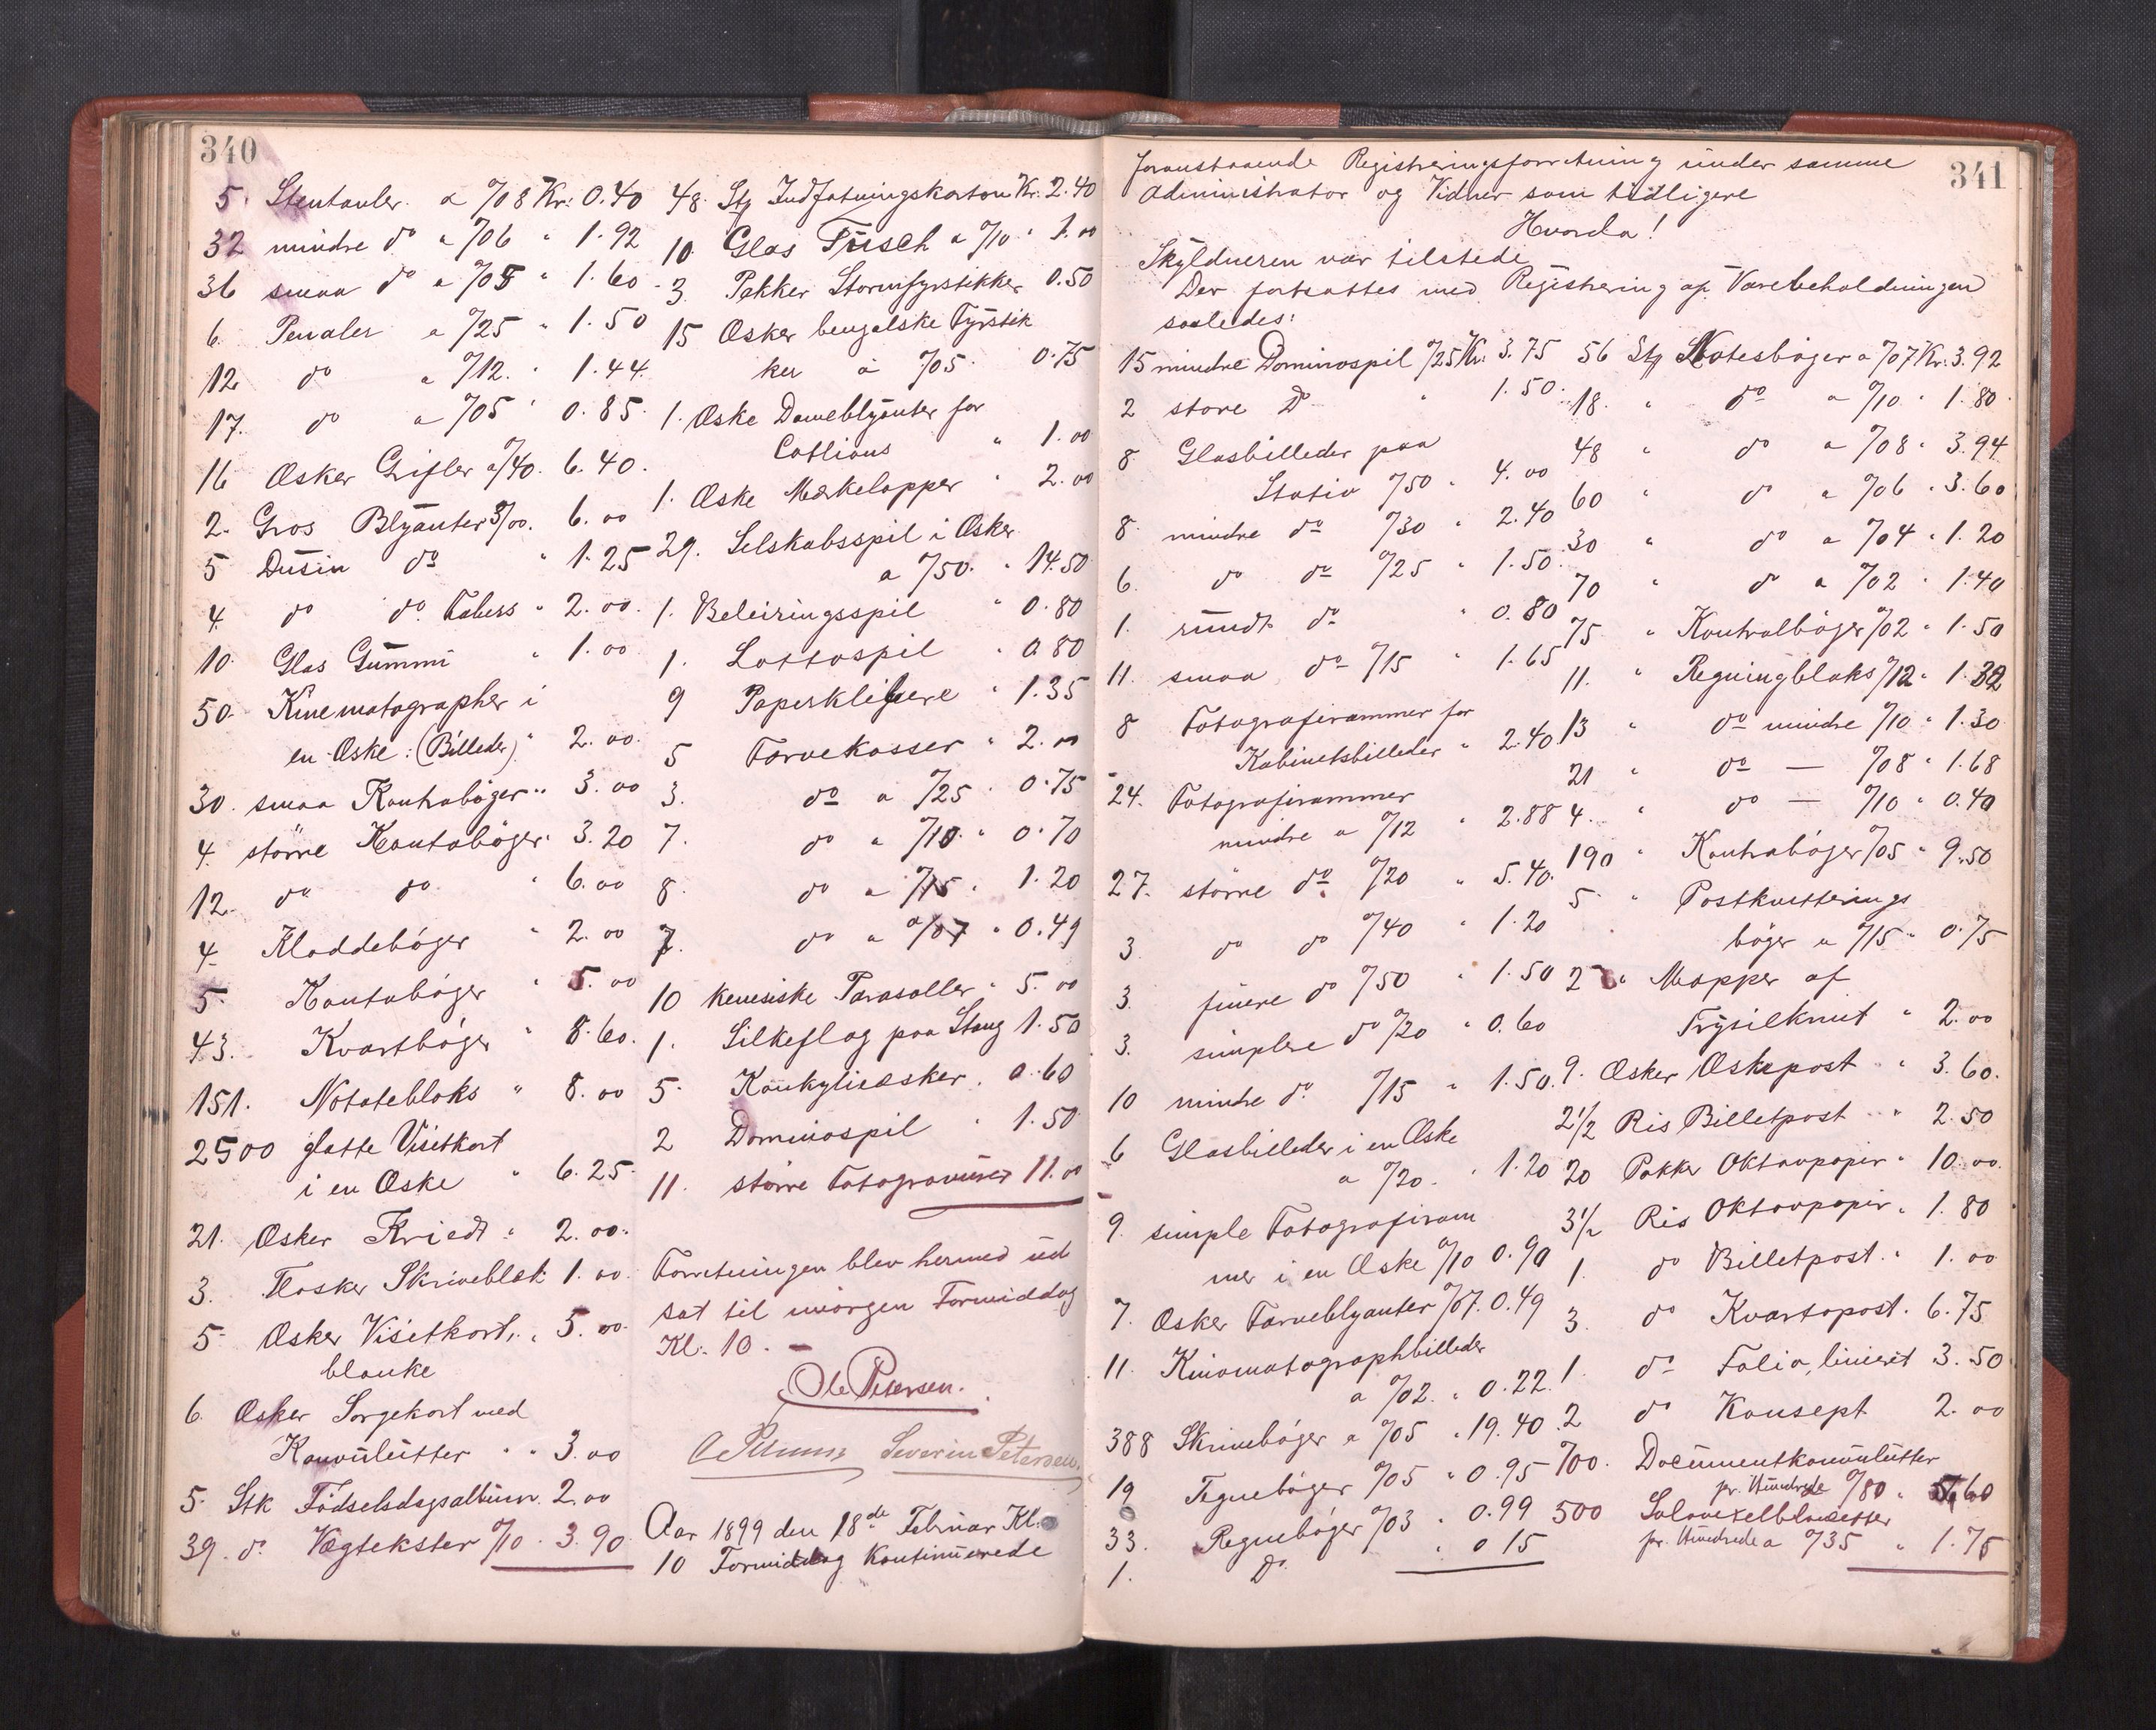 340
5. Stentavler a %08 Kr: 0.40
32 mindre do a %06 " 1.92
36 smaa do a %05 " 1.60
6. Penaler a %25 " 1.50
12 do a %12. " 1.44.
17. do a %05 " 0.85.
16 Æsker Grifler a %40. 6.40.
2. Gros Blyanter 3/00. 6.00
5 Dusin do " 1.25
4. do do Fabers " 2.00.
10. Glas Gummi " 1.00
50. Kinematographer i
en Æske: (Billeder) " 2.00.
30. smaa Kontrabøger " 3.00
4. større Kontobøger " 3.20
12. do do " 6.00
4. Kladdebøger " 2.00
5. Kontobøger " 5.00
43. Kvartbøger " 8.60.
151. Notatebloks " 8.00
2500 glatte Visitkort
i en Æske " 6.25.
21. Æsker Kridt " 2.00.
3. Flasker Skriveblæk 1.00.
5. Æsker Visitkort, " 5.00.
blanke
6. Æsker Sorgekort med
Konvolutter " " 3.00
5. Stk Fødselsdagsalbum. 2.00
39. do Vægtekster %10 . 3.90
48. Stg Indfatningskarton Kr. 2.40
10. Glas Tusch a %10 " 1.00
3. Pakker Stormfyrstikker 0.50
15 Æsker bengalske Fyrstik
ker à %05. 0.75
1. Æske Dameblyanter for
Cotlions " 1.00
1. Æske Mærkelapper " 2.00
29. Selskabsspil i Æsker
a %50. " 14.50
1. Beleiringsspil " 0.80
1. Lottospil " 0.80
9 Papirklibere " 1.35
5 Farvekasser " 2.00
3. do a %25 . 0.75
7. do a %10. " 0.70
8. do a %15 . 1.20
7. do a %07 " 0.49
10 kinesiske Parasoller " 5.00
1. Silkeflag paa Stang 1.50
5. Konkylieæsker. 0.60
2 Dominospil " 1.50
11. større Fotogravurer 11.00
Forretningen blev hermed ud
sat til imorgen Formiddag
Kl. 10. —
Ole Petersen.
Severin Petersen.
Aar 1899 den 18de Februar Kl.
10 Formiddag Kontinuerede
341
foranstaaende Registreringsforretning under samme
Administrator og Vidner som tidligere
Hvorda!
Skyldneren var tilstede
Der fortsattes med Registrering af Varebeholdningen
saaledes:
15 mindre Dominospil %25 Kr. 3.75
2 store Do " 1.50.
8 Glasbilleder paa
Stativ %50 " 4.00
8. mindre do %30 " 2.40
6. do do %25 " 1.50.
1. rundt do " 0.80
11. smaa do %15 " 1.65
8 Fotografirammer for
Kabinetsbilleder " 2.40
24. Fotografirammer
mindre a %12 " 2.88
27. større do %20 " 5.40.
3. do do %40 " 1.20
3. finere do %50 " 1.50
3. simplere do %20 " 0.60
10 mindre do %15 " 1.50.
6 Glasbilleder i en Æske
a %20. " 1.20
9. simple Fotografiram
mer i en Æske %10 0.90
7. Æsker Farveblyanter %07. 0.49
11. Kinomatographbilleder
a %02. " 0.22.
388 Skrivebøger a %05 " 19.40
19 Tegnebøger %05 " 0.95
33. Regnebøger %03 " 0.99
1. Do. " 0 15
56 Stg Notesbøger a %07 Kr. 3.92
18. " do a %10 " 1.80.
48 " do a %08 " 3.94
60 " do a %06 " 3.60
30 " do a %04 " 1.20
70 " do a %02 " 1.40
75. " Kontralbøger %02 " 1.50
11. " Regningbloks %12 " 1.32
13 " do mindre %10 " 1.30
21 " do — %08 " 1.68
4. " do — %10 " 0.40
190 " Kontrabøger %05 " 9.50
5. " Postkvitterings
bøger a %15 " 0.75
2 " Mapper af
Trysilknut " 2.00
9. Æsker Æskepost " 3.60.
2½ Ris Billetpost " 2.50
20 Pakker Oktavpapir " 10.00.
3½ Ris Oktavpapir " 1.80
1. do Billetpost. " 1.00
3. do Kvartopost. 6.75
1. do Folio, linieret 3.50
2 do Konsept 2.00
700. Documentkonvolutter
pr. Hundrede %80 " 5.60
500
pr. Hundrede a %35 " 1.75